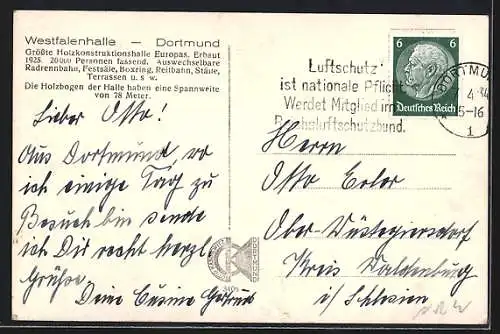 Westfalenhalle — Dortmund
Größte Holzkonstruktionshalle Europas. Erbaut
1925. 20000 Personen fassend. Auswechselbare
Radrennbahn, Festsäle, Boxring, Reitbahn, Ställe,
Terrassen u. s. w.
Die Holzbogen der Halle haben eine Spannweite
von 78 Meter.
Lieber Otto!
Aus Dortmund, wo
ich einige Tag zu
Besuch bin sende
ich Dir recht herzl.
Grüße.
Deine Cusine
DORTMUND
Luftschutz
ist nationale Pflicht
Werdet Mitglied im
Reichsluftschutzbund.
6 6
Deutsches Reich
DORTMUND
4
15-16
1
Herrn
Otto
Ober-Wüstegiersdorf
Kreis Waldenburg
i/ Schlesien